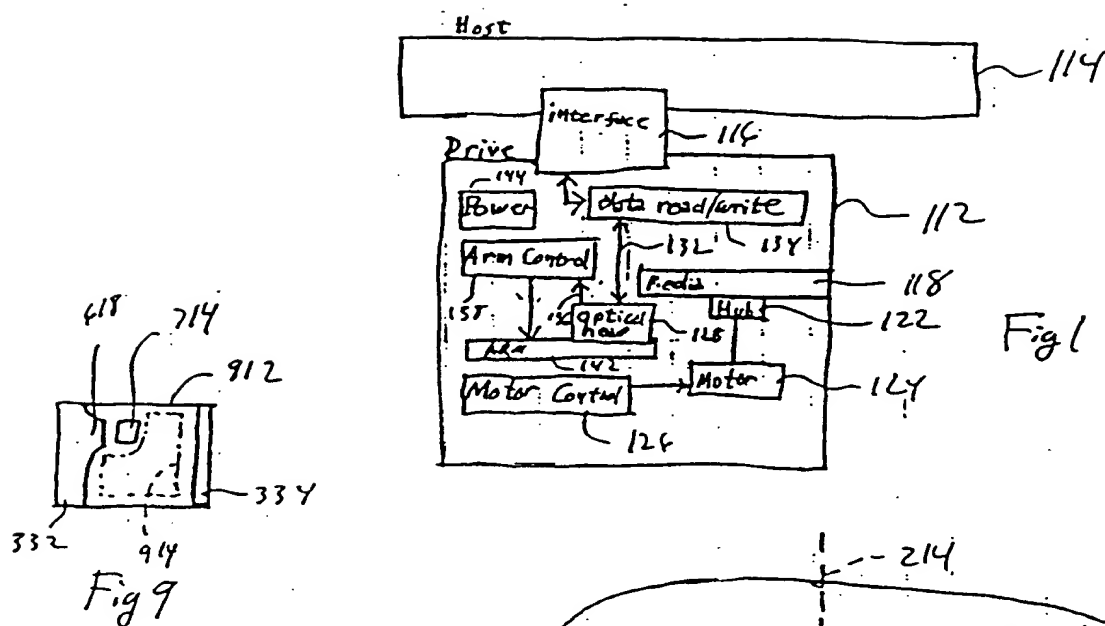 Host
114
interface
116
Drive
144
Power
data read/write
112
132
134
Arm Control
Media
118
138
136
optical head
128
Hub
122
Fig 1
ARM
142
Motor
124
Motor Control
126
618
714
912
334
332
914
Fig 9
214